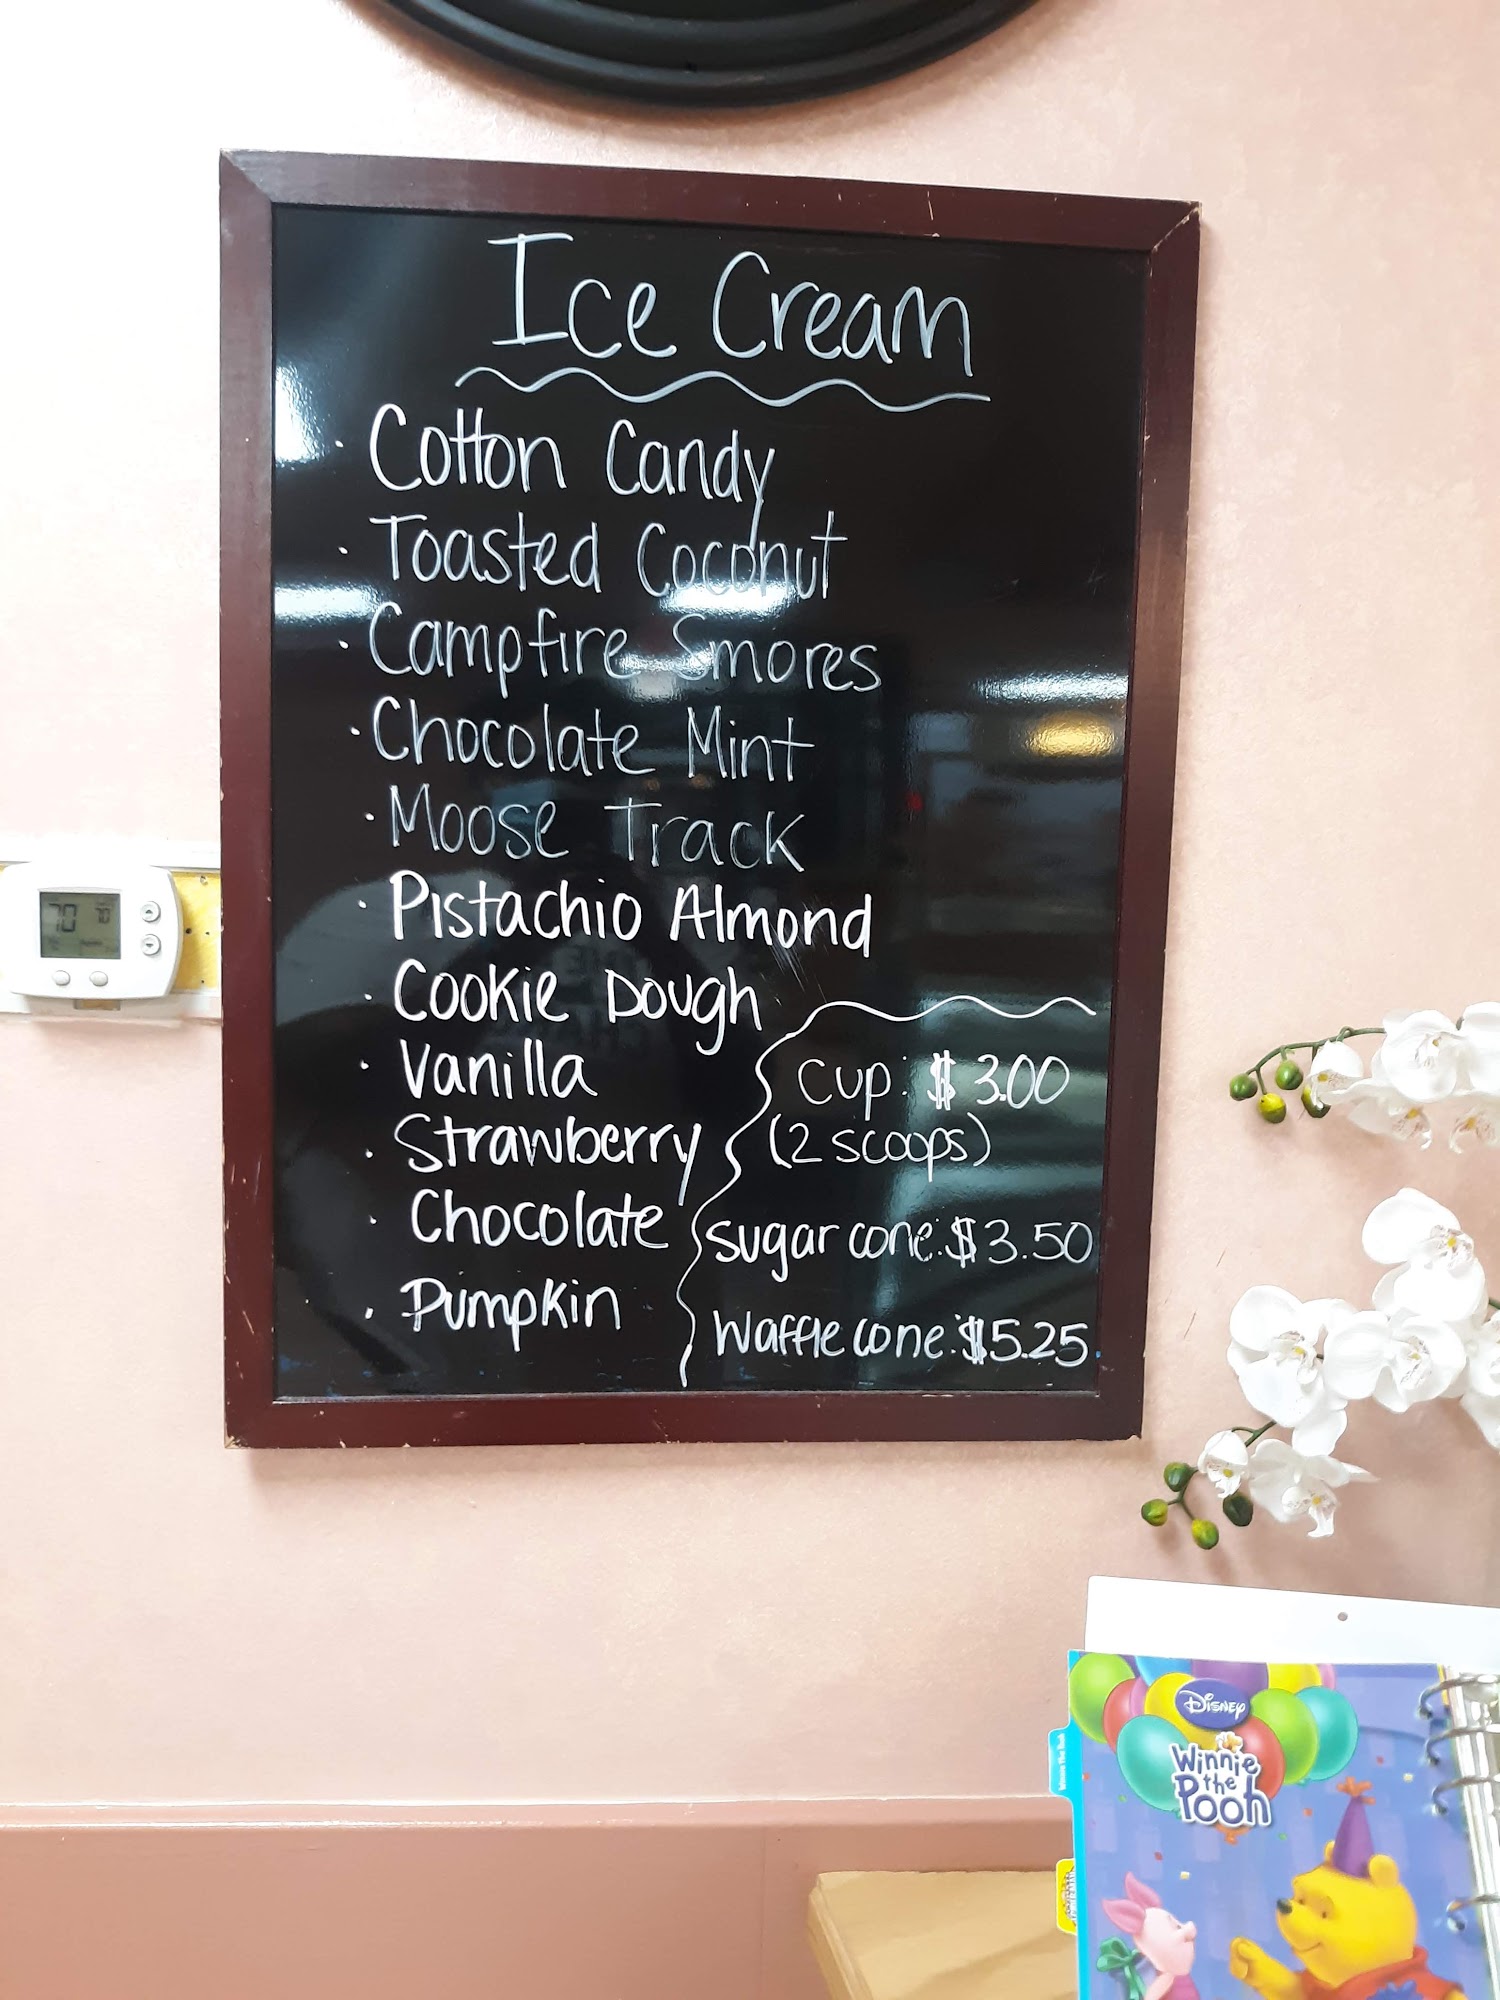 Ice Cream
· Cotton Candy
· Toasted Coconut
· Campfire Smores
· Chocolate Mint
· Moose Track
· Pistachio Almond
· Cookie Dough
· Vanilla
· Strawberry
· Chocolate
· Pumpkin
Cup: $3.00
(2 scoops)
Sugar cone: $3.50
Waffle cone: $5.25
70 70
Disney
Winnie
the
Pooh